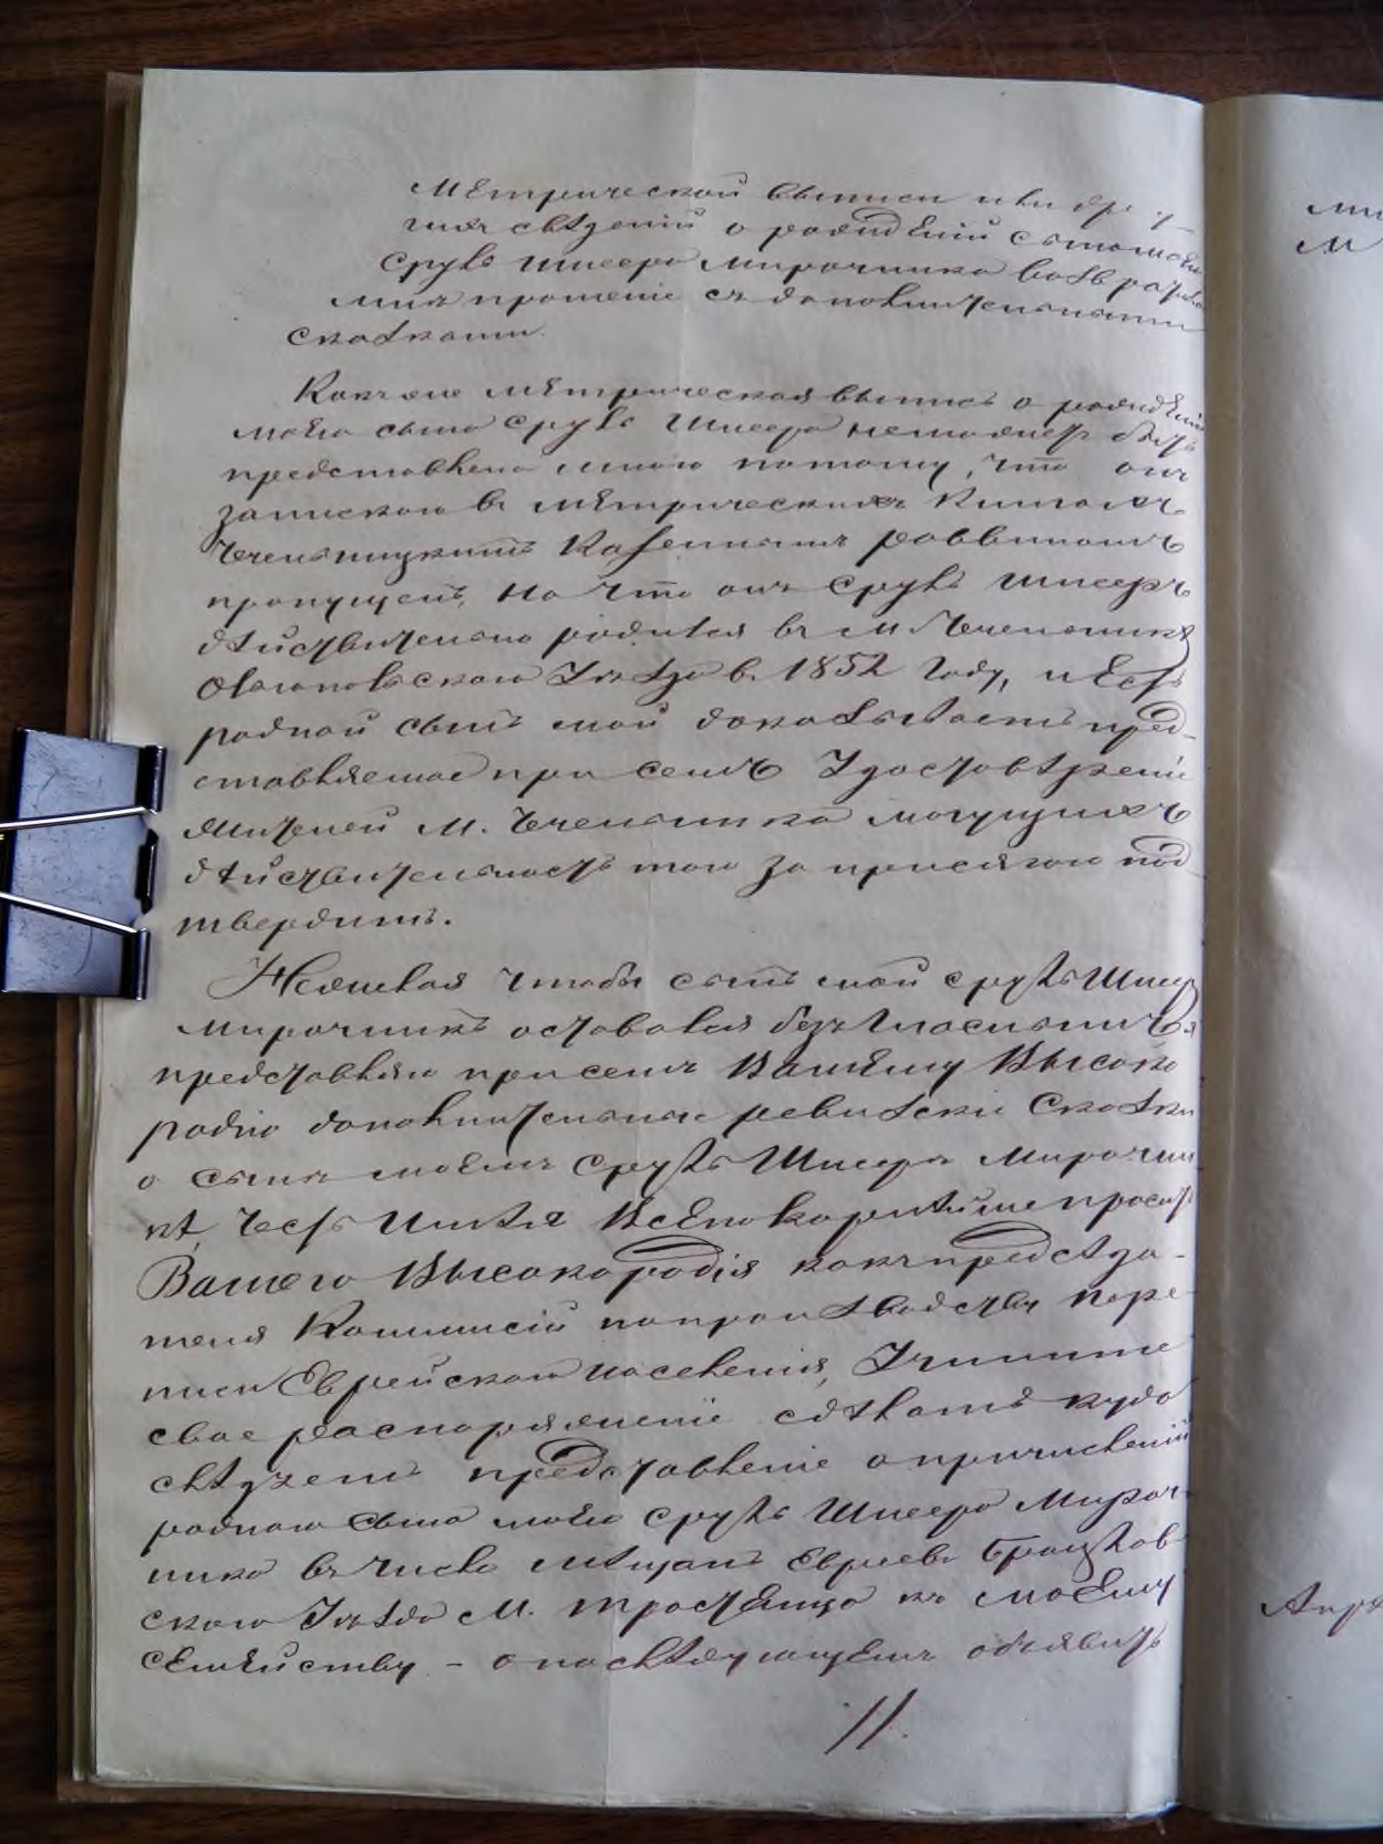 Метрической выписи или дру-
гихъ свѣдений о рождении сына моего
Сруль Шнеера Мирочника возвратила
мнѣ прошеніе съ дополнительными
сказками.
Какъ же метрическая выпись о рожденіи
моего сына Сруль Шнеера неможетъ быть
представлена мною потому, что онъ
запискою въ метрическихъ книгахъ
Чечельницкимъ Казеннымъ раввиномъ
пропущенъ, но что онъ Сруль Шнееръ
дѣйствительно родился въ м Чечельникѣ
Ольгопольскаго Уѣзда въ 1852 году, и есть
родной сынъ мой доказываетъ пред-
ставляемое при семъ Удостовѣреніе
жителей м. Чечельника могущихъ
дѣйствительность того за присягою под-
твердить.
Нежелая чтобы сынъ мой Сруль Шнеер
Мирочникъ оставался безгласнымъ я
представляю присемъ Вашему Высоко
родію дополнительные ревизскіе Сказки
о сынѣ моемъ Сруль Шнееръ Мирочни
кѣ, честь имѣя Всепокорнѣйше просить
Вашего Высокородія какъ предсѣда-
теля Коммисіи попроизводству пере-
писи Еврейскаго населенія, Учините
свое распоряженіе сдѣлать куда
слѣдуетъ представленіе о причисленіи
роднаго сына моего Сруль Шнеера Мироч-
ника въ число мѣщанъ Евреевъ Брацлав-
скаго Уѣзда М. Тростянца къ моему
семейству - о послѣдующемъ объявить
11.
мн
м
Апрѣ